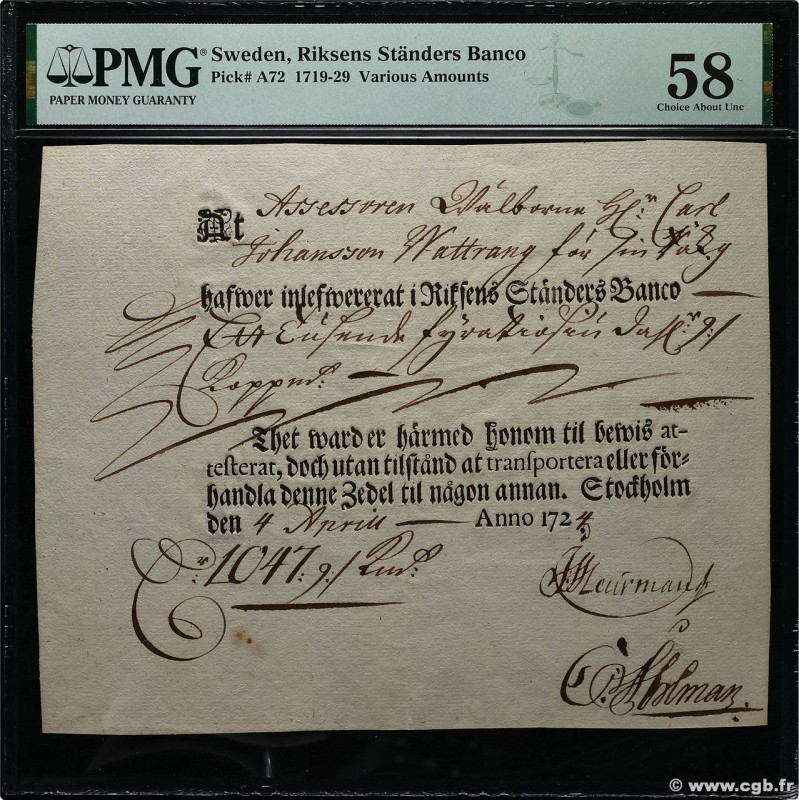 PMG® Sweden, Riksens Ständers Banco
Pick# A72 1719-29 Various Amounts
PAPER MONEY GUARANTY
58
Choice About Unc
At Assessoren Wälborne H:r Carl
Johansson Wattrang för
hafwer inlefwererat i Riksens Ständers Banco
Tusende
Thet warder härmed honom til bewis at-
testerat, doch utan tilstånd at transportera eller för-
handla denne Zedel til någon annan. Stockholm
den 4 Aprill — Anno 1724
1047: 9:/
Ahlman
© www.cgb.fr